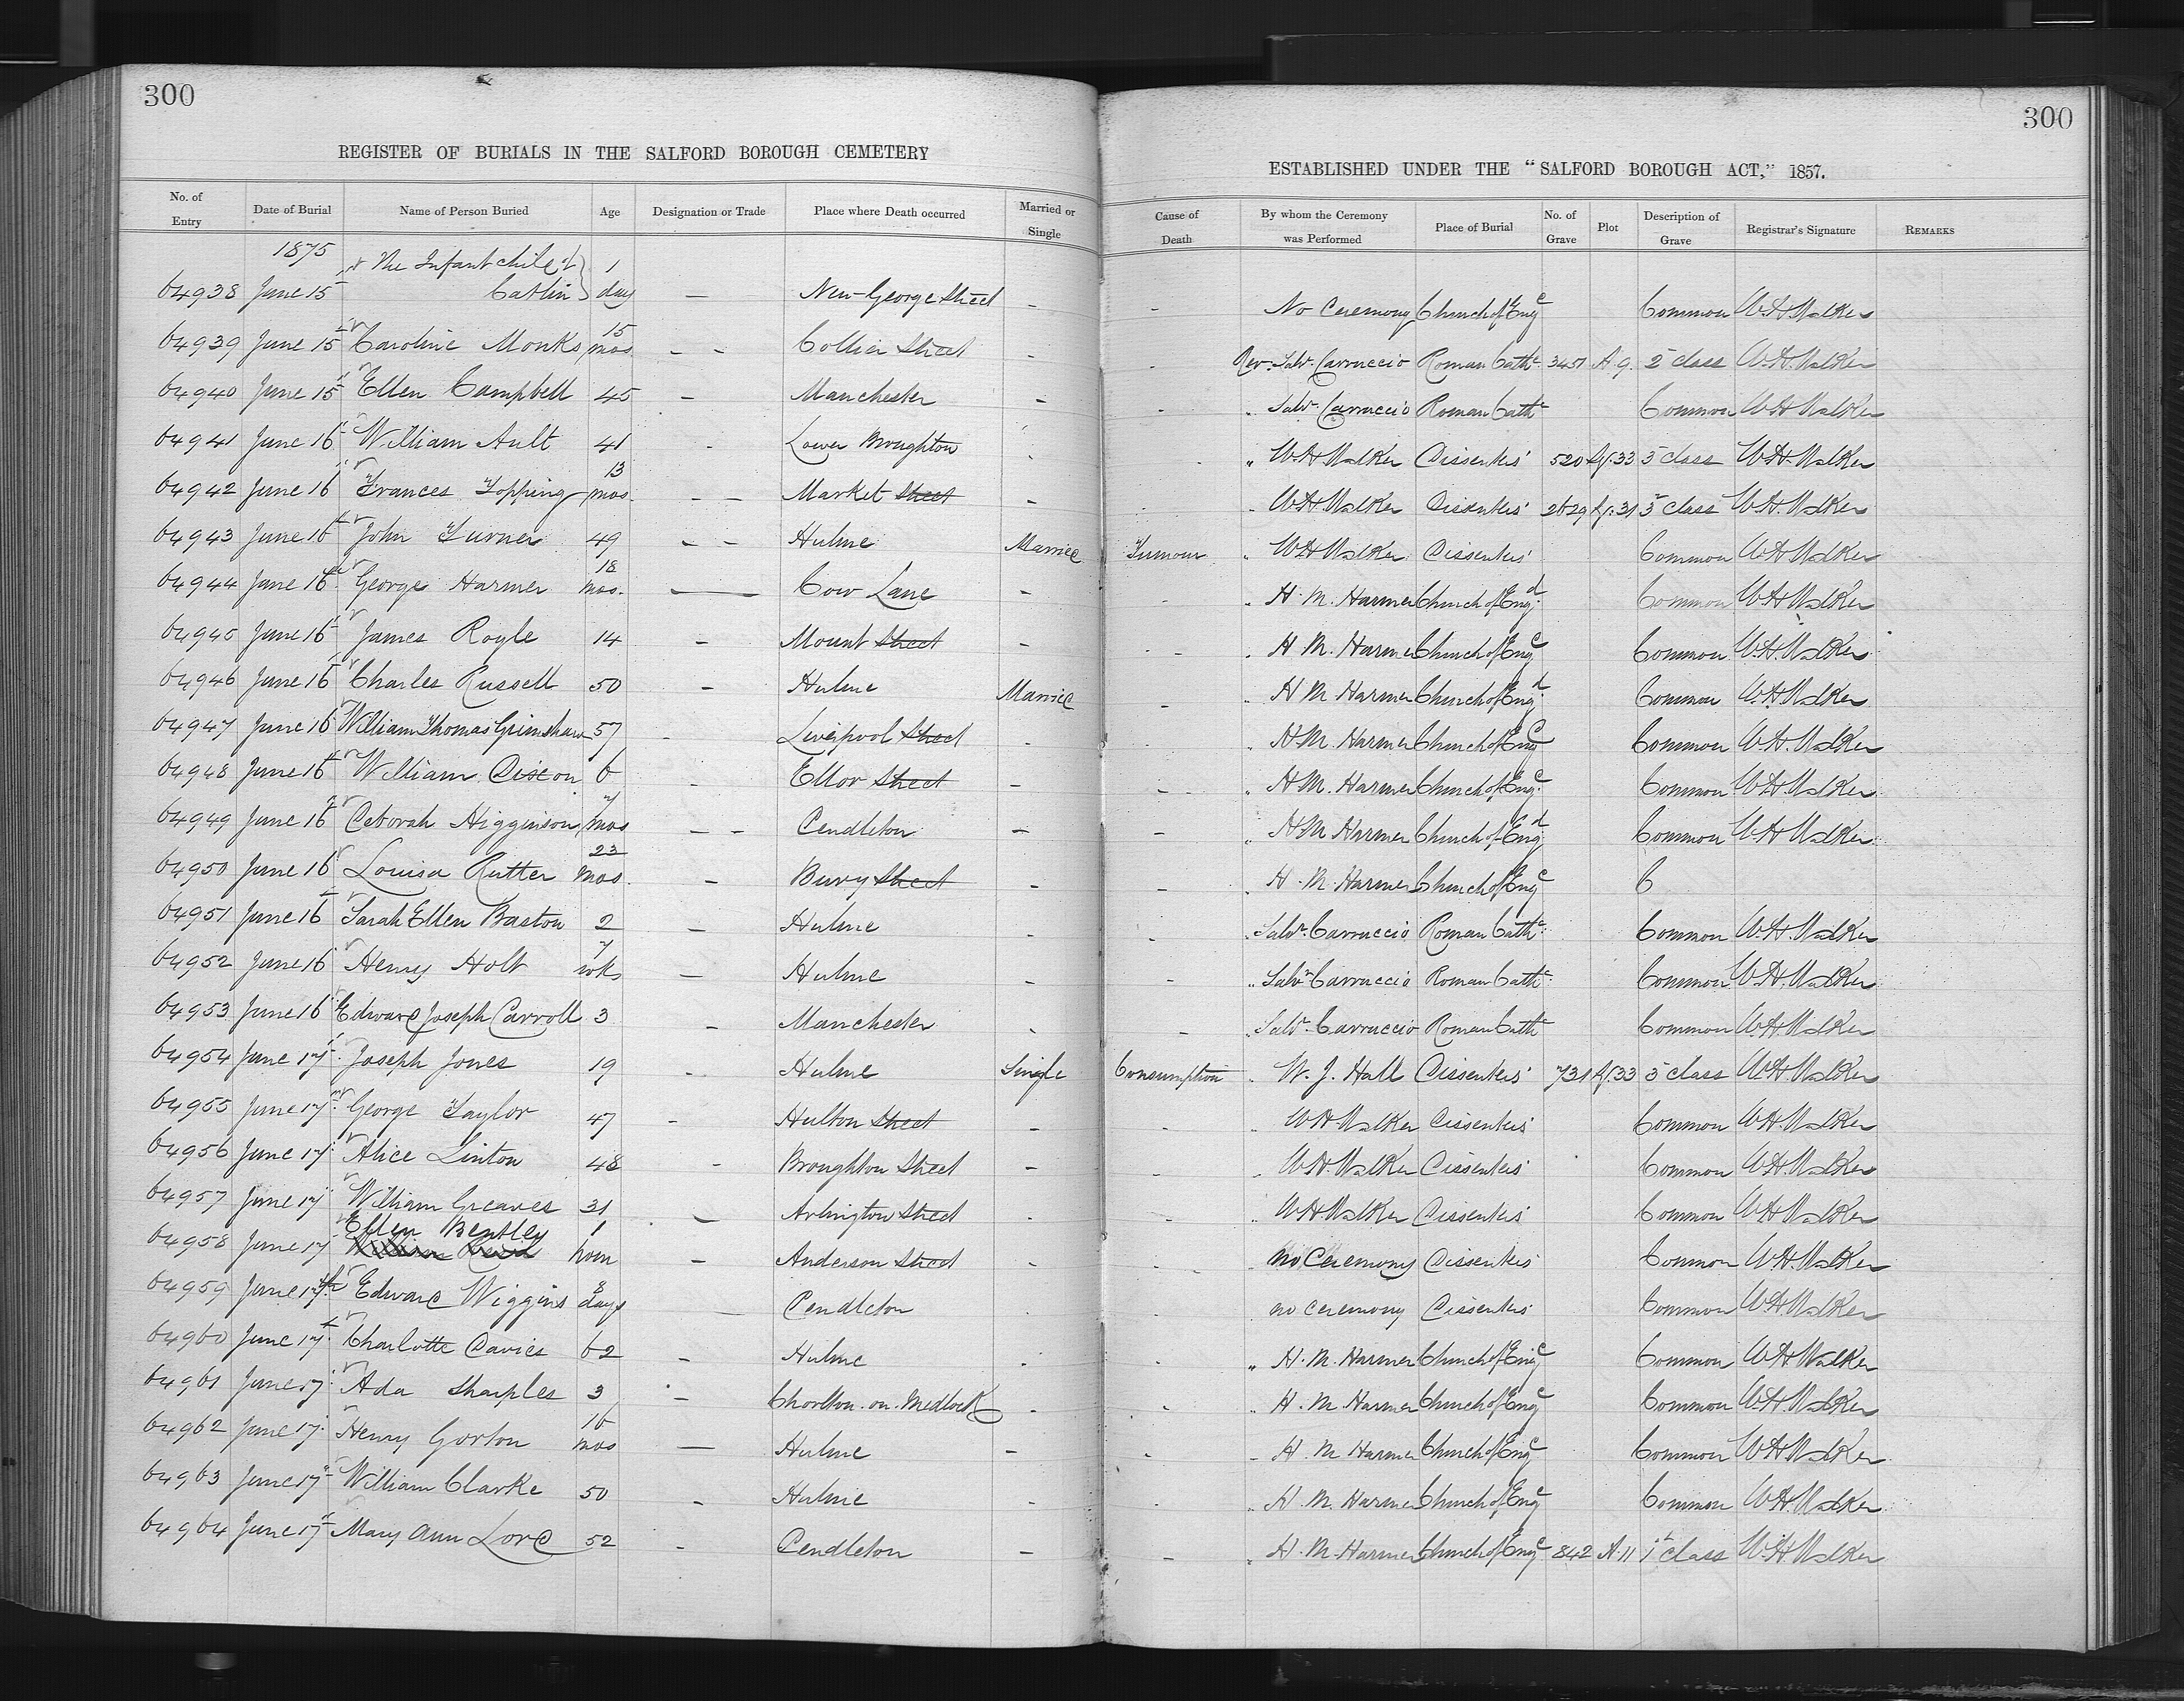 300
300
REGISTER OF BURIALS IN THE SALFORD BOROUGH CEMETERY
ESTABLISHED UNDER THE "SALFORD BOROUGH ACT," 1857.
No. of Entry | Date of Burial | Name of Person Buried | Age | Designation or Trade | Place where Death occurred | Married or Single | Cause of Death | By whom the Ceremony was Performed | Place of Burial | No. of Grave | Plot | Description of Grave | Registrar's Signature | REMARKS
1875
64938 June 15 The Infant child of Catlin 1 day — New George Street - - No Ceremony Church of Engd Common W.H. Walker
64939 June 15 Caroline Monks 15 mos - - Collier Street - - Rev. Salvr. Carruccio Roman Cathc 3451 A.9. 2 class W.H. Walker
64940 June 15 Ellen Campbell 45 - Manchester - - " Salvr. Carruccio Roman Cathc Common W.H. Walker
64941 June 16 William Ault 41 - Lower Broughton - - " W.H. Walker Dissenters' 520 33 3 class W.H. Walker
64942 June 16 Frances Topping 13 mos. - - Market Street - - " W.H. Walker Dissenters' 2629 31 3 class W.H. Walker
64943 June 16 John Turner 49 - - Hulme Married Tumour " W.H. Walker Dissenters' Common W.H. Walker
64944 June 16 George Harmer 18 mos. — Cow Lane - - " H. M. Harmer Church of Engd Common W.H. Walker
64945 June 16 James Royle 14 - Mount Street - - " H. M. Harmer Church of Engd Common W.H. Walker
64946 June 16 Charles Russell 50 - Hulme Married - " H. M. Harmer Church of Engd Common W.H. Walker
64947 June 16 William Thomas Grimshaw 57 - Liverpool Street - - " H. M. Harmer Church of Engd Common W.H. Walker
64948 June 16 William Dixon 6 - Ellor Street - - " H. M. Harmer Church of Engd Common W.H. Walker
64949 June 16 Deborah Higginson 7 mos - - Pendleton - - " H. M. Harmer Church of Engd Common W.H. Walker
64950 June 16 Louisa Rutter 23 mos. - Bury Street - - " H. M. Harmer Church of Engd C
64951 June 16 Sarah Ellen Baston 2 - Hulme - - " Salvr. Carruccio Roman Cathc Common W.H. Walker
64952 June 16 Henry Holt 7 wks - Hulme - - " Salvr. Carruccio Roman Cathc Common W.H. Walker
64953 June 16 Edward Joseph Carroll 3 - Manchester - - " Salvr. Carruccio Roman Cathc Common W.H. Walker
64954 June 17 Joseph Jones 19 - Hulme Single Consumption " W. J. Hall Dissenters' 731 33 3 class W.H. Walker
64955 June 17 George Taylor 47 - Hulton Street - - " W.H. Walker Dissenters' Common W.H. Walker
64956 June 17 Alice Linton 48 - Broughton Street - - " W.H. Walker Dissenters' Common W.H. Walker
64957 June 17 William Greaves 31 - Arlington Street - - " W.H. Walker Dissenters' Common W.H. Walker
64958 June 17 Ellen Bentley 1 hour - Anderson Street - - No Ceremony Dissenters' Common W.H. Walker
64959 June 17th Edward Wiggins 8 days - Pendleton - - no ceremony Dissenters' Common W.H. Walker
64960 June 17 Charlotte Davies 62 - Hulme - - " H. M. Harmer Church of Engd Common W.H. Walker
64961 June 17 Ada Sharples 3 - Chorlton-on-Medlock - - " H. M. Harmer Church of Engd Common W.H. Walker
64962 June 17 Henry Gorton 16 mos - Hulme - - " H. M. Harmer Church of Engd Common W.H. Walker
64963 June 17 William Clarke 50 - Hulme - - " H. M. Harmer Church of Engd Common W.H. Walker
64964 June 17 Mary Ann Lord 52 - Pendleton - - " H. M. Harmer Church of Engd 842 A.11 1st class W.H. Walker